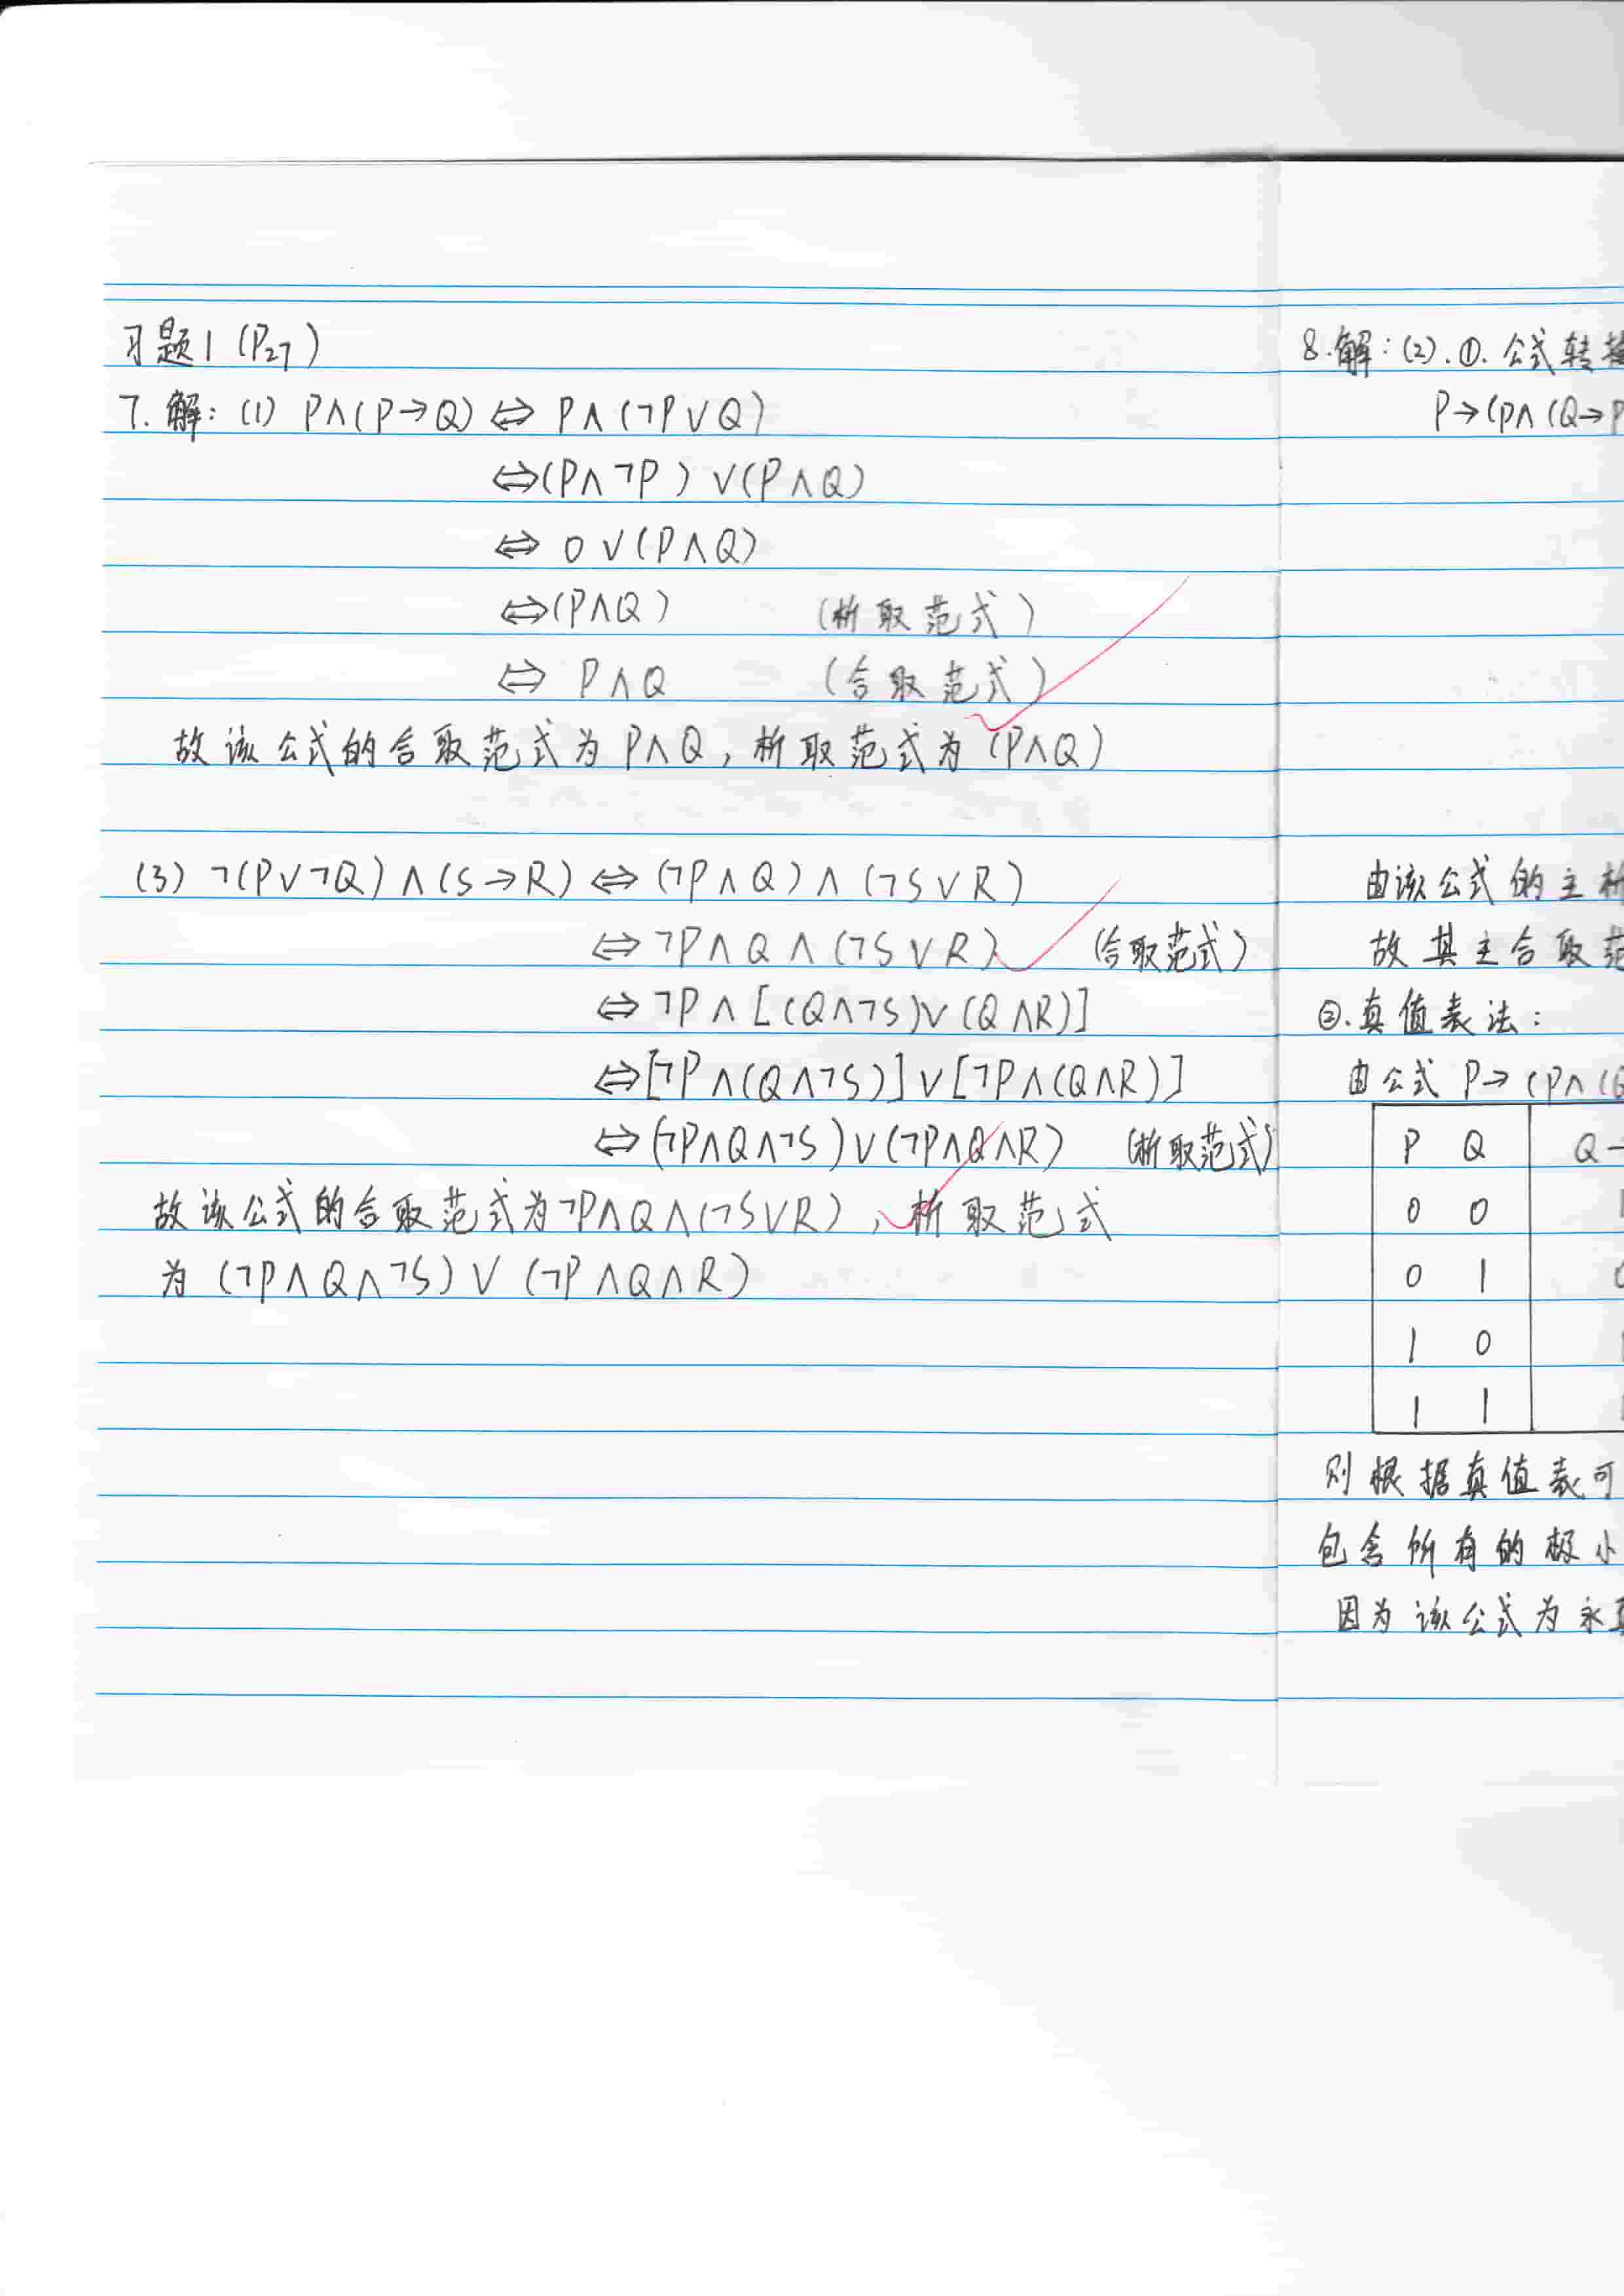 习题1 (P27)
7. 解: (1) P∧(P→Q) ⇔ P∧(¬P∨Q)
⇔(P∧¬P)∨(P∧Q)
⇔ 0∨(P∧Q)
⇔(P∧Q) (析取范式)
⇔ P∧Q (合取范式)
故该公式的合取范式为P∧Q, 析取范式为(P∧Q)
(3) ¬(P∨¬Q)∧(S→R) ⇔ (¬P∧Q)∧(¬S∨R)
⇔ ¬P∧Q∧(¬S∨R) (合取范式)
⇔ ¬P∧[(Q∧¬S)∨(Q∧R)]
⇔[¬P∧(Q∧¬S)]∨[¬P∧(Q∧R)]
⇔(¬P∧Q∧¬S)∨(¬P∧Q∧R) (析取范式)
故该公式的合取范式为¬P∧Q∧(¬S∨R), 析取范式
为(¬P∧Q∧¬S)∨(¬P∧Q∧R)
8. 解: (2). ①. 公式转
P→(P∧(Q→P
由该公式的主析
故其主合取范
②. 真值表法:
由公式 P→(P∧(Q
P Q Q→
0 0
0 1
1 0
1 1
则根据真值表可
包含所有的极小
因为该公式为永